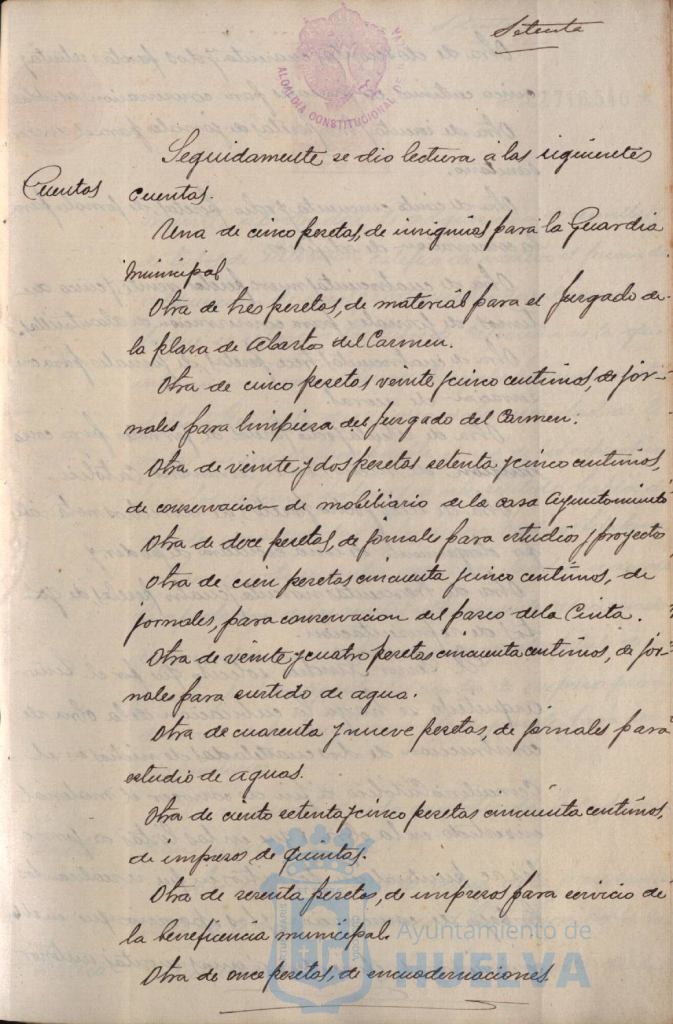 Setenta
ALCALDIA CONSTITUCIONAL DE
Seguidamente se dio lectura á las siguientes
Cuentas
cuentas.
Una de cinco pesetas, de insignias para la Guardia
Municipal
Otra de tres pesetas, de material para el Juzgado de
la plaza de Abastos del Carmen.
Otra de cinco pesetas veinte y cinco centimos, de jor-
nales para limpieza del Juzgado del Carmen.
Otra de veinte y dos pesetas setenta y cinco centimos,
de conservacion de mobiliario de la casa Ayuntamiento
Otra de doce pesetas, de jornales para estudios y proyectos
Otra de cien pesetas cincuenta y cinco centimos, de
jornales, para conservacion del paseo de la Cinta.
Otra de veinte y cuatro pesetas cincuenta centimos, de jor-
nales para surtido de agua.
Otra de cuarenta y nueve pesetas, de jornales para
estudio de aguas.
Otra de ciento setenta y cinco pesetas cincuenta centimos,
de impresos de quintas.
Otra de sesenta pesetas, de impresos para servicio de
la beneficencia municipal.
Otra de once pesetas, de encuadernaciones
Ayuntamiento de
HUELVA